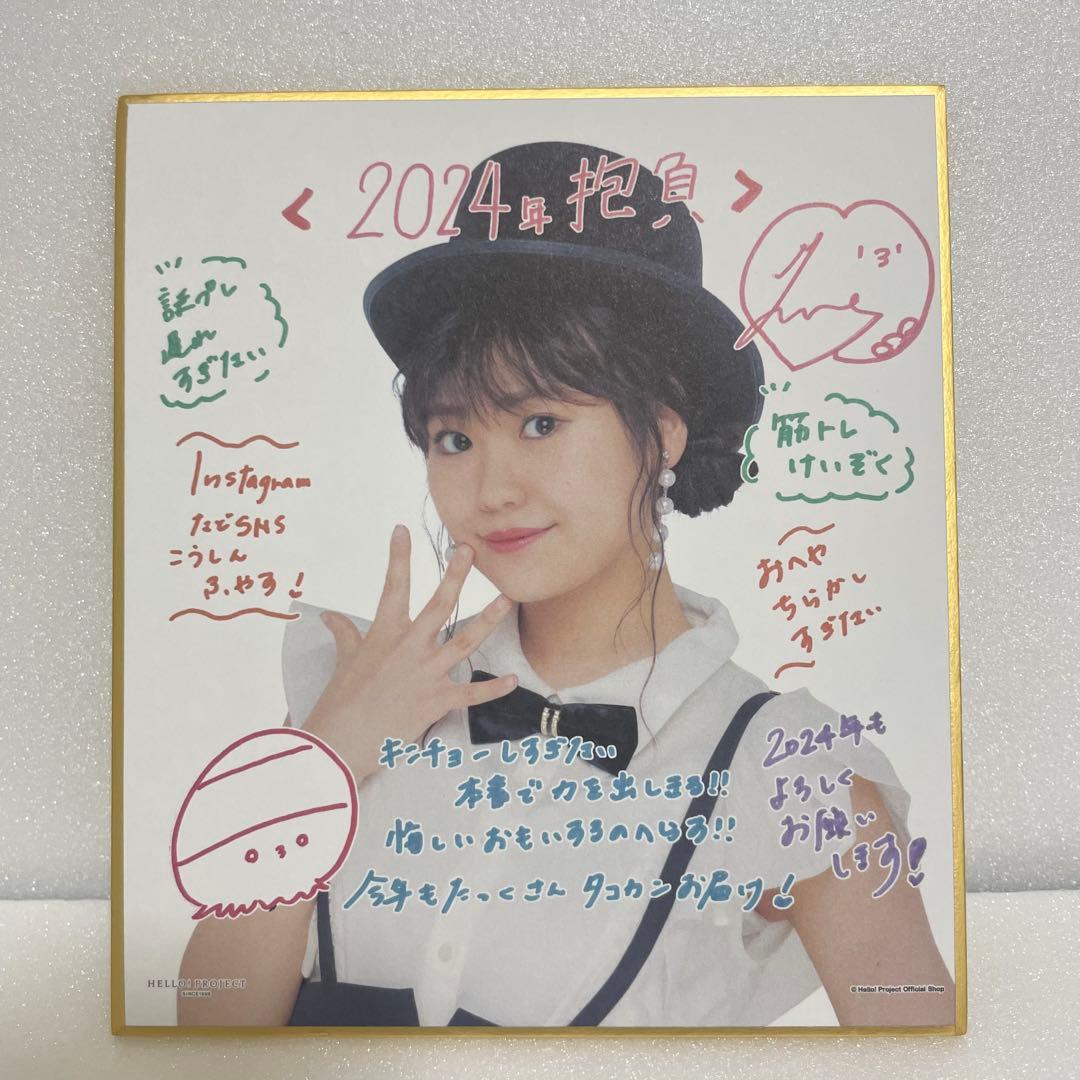 < 2024年 抱負 >
'3'
遅れ
すぎない
筋トレ
けいぞく
Instagram
などSNS
こうしん
ふやす!
おへや
ちらかし
すぎない
キンチョーしすぎない
本番で力を出しきる!!
悔しいおもいするのへらす!!
今年もたっくさん タコカン お届け!
2024年も
よろしく
お願い
します!
HELLO! PROJECT
SINCE1998
© Hello! Project Official Shop